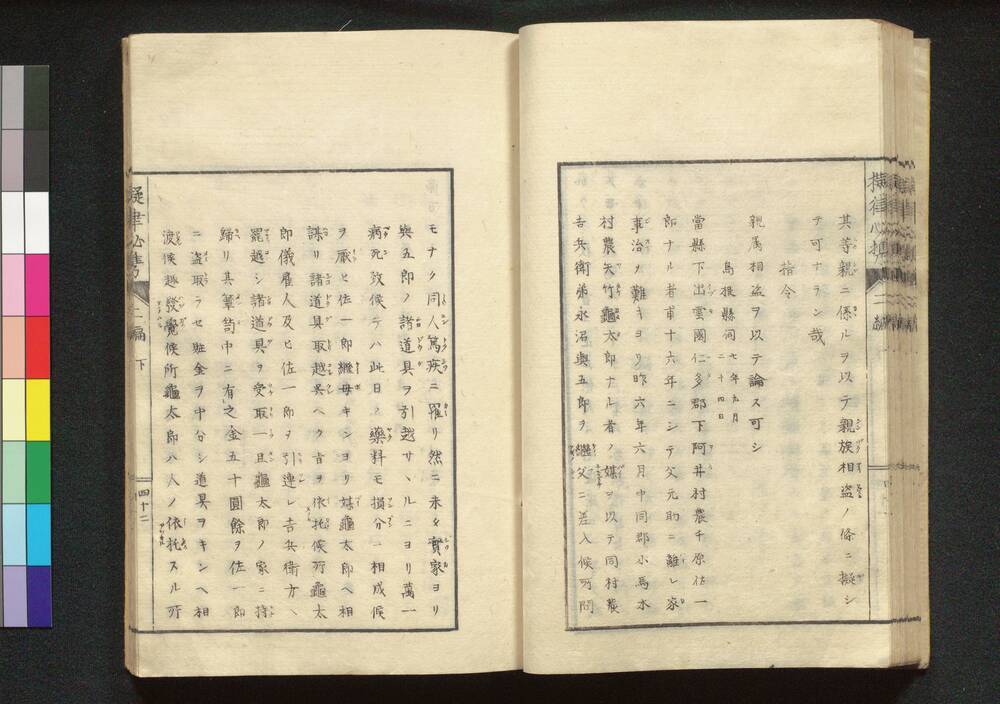 其等親ニ係ルヲ以テ親族相盗ノ條ニ擬シ
テ可ナラン哉
指令
親属相盗ヲ以テ論ス可シ
島根縣伺 七年九月二十四日
當縣下出雲國仁多郡下阿井村農千原佐一
郎ナル者車十六年ニシテ父元助ニ離レ家
事治メ難キヨリ昨六年六月中同郡小馬木
村農矢竹龜太郎ナル者ノ媒ヲ以テ同村農
吉兵衛弟永沼與五郎ヲ継父ニ差入候所間
モナク同人篤疾ニ罹リ然ニ未タ實家ヨリ
與五郎ノ諸道具ヲ引越サヽルニヨリ萬一
病死致候テハ此日ノ藥料モ損分ニ相成候
ヲ厭ヒ佐一郎継母キンヨリ媒龜太郎ヘ相
謀リ諸道具取越呉ヘク旨ヲ依托候所龜太
郎儀雇人及ヒ佐一郎ヲ引連レ吉兵衛方ヘ
罷越シ諸道具ヲ受取一旦龜太郎ノ家ニ持
歸リ其箪笥中ニ有之金五十圓餘ヲ佐一郎
ニ盗取ラセ賍金ヲ中分シ道具ヲキンヘ相
渡候趣發覺候所龜太郎ハ人ノ依托スル所
擬律必携 二編 下
四十二